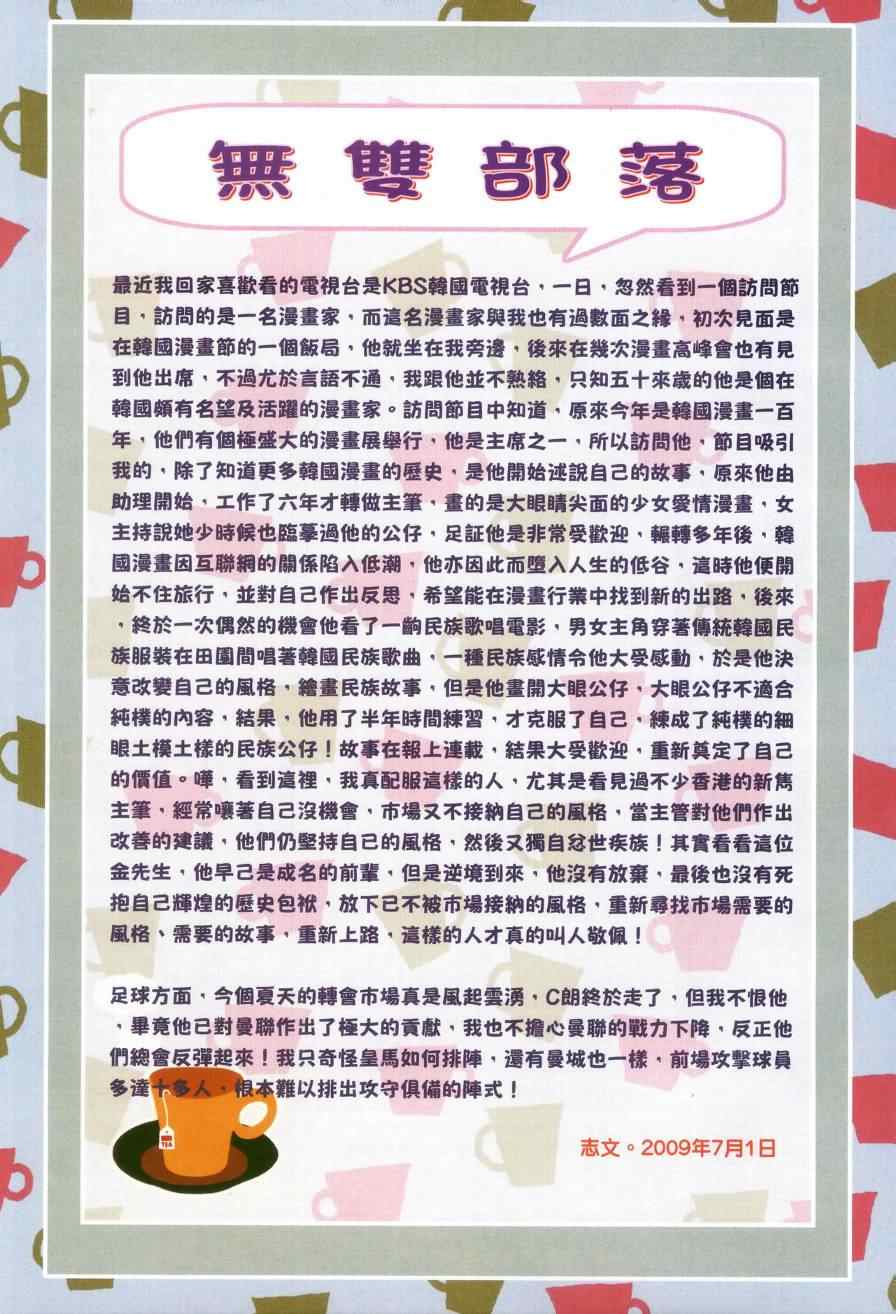 無雙部落
最近我回家喜歡看的電視台是KBS韓國電視台，一日，忽然看到一個訪問節
目，訪問的是一名漫畫家，而這名漫畫家與我也有過數面之緣，初次見面是
在韓國漫畫節的一個飯局，他就坐在我旁邊，後來在幾次漫畫高峰會也有見
到他出席，不過尤於言語不通，我跟他並不熟絡，只知五十來歲的他是個在
韓國頗有名望及活躍的漫畫家。訪問節目中知道，原來今年是韓國漫畫一百
年，他們有個極盛大的漫畫展舉行，他是主席之一，所以訪問他，節目吸引
我的，除了知道更多韓國漫畫的歷史，是他開始述說自己的故事，原來他由
助理開始，工作了六年才轉做主筆，畫的是大眼睛尖面的少女愛情漫畫，女
主持說她少時候也臨摹過他的公仔，足証他是非常受歡迎，輾轉多年後，韓
國漫畫因互聯網的關係陷入低潮，他亦因此而墮入人生的低谷，這時他便開
始不住旅行，並對自己作出反思，希望能在漫畫行業中找到新的出路，後來
，終於一次偶然的機會他看了一齣民族歌唱電影，男女主角穿著傳統韓國民
族服裝在田園間唱著韓國民族歌曲，一種民族感情令他大受感動，於是他決
意改變自己的風格，繪畫民族故事，但是他畫開大眼公仔，大眼公仔不適合
純樸的內容，結果，他用了半年時間練習，才克服了自己，練成了純樸的細
眼土模土樣的民族公仔！故事在報上連載，結果大受歡迎，重新奠定了自己
的價值。嘩，看到這裡，我真配服這樣的人，尤其是看見過不少香港的新雋
主筆，經常嚷著自己沒機會，市場又不接納自己的風格，當主管對他們作出
改善的建議，他們仍堅持自已的風格，然後又獨自忿世疾族！其實看看這位
金先生，他早己是成名的前輩，但是逆境到來，他沒有放棄，最後也沒有死
抱自己輝煌的歷史包袱，放下已不被市場接納的風格，重新尋找市場需要的
風格、需要的故事，重新上路，這樣的人才真的叫人敬佩！
足球方面，今個夏天的轉會市場真是風起雲湧，C朗終於走了，但我不恨他
，畢竟他己對曼聯作出了極大的貢獻，我也不擔心曼聯的戰力下降，反正他
們總會反彈起來！我只奇怪皇馬如何排陣，還有曼城也一樣，前場攻擊球員
多達十多人，根本難以排出攻守俱備的陣式！
TEA
志文。2009年7月1日